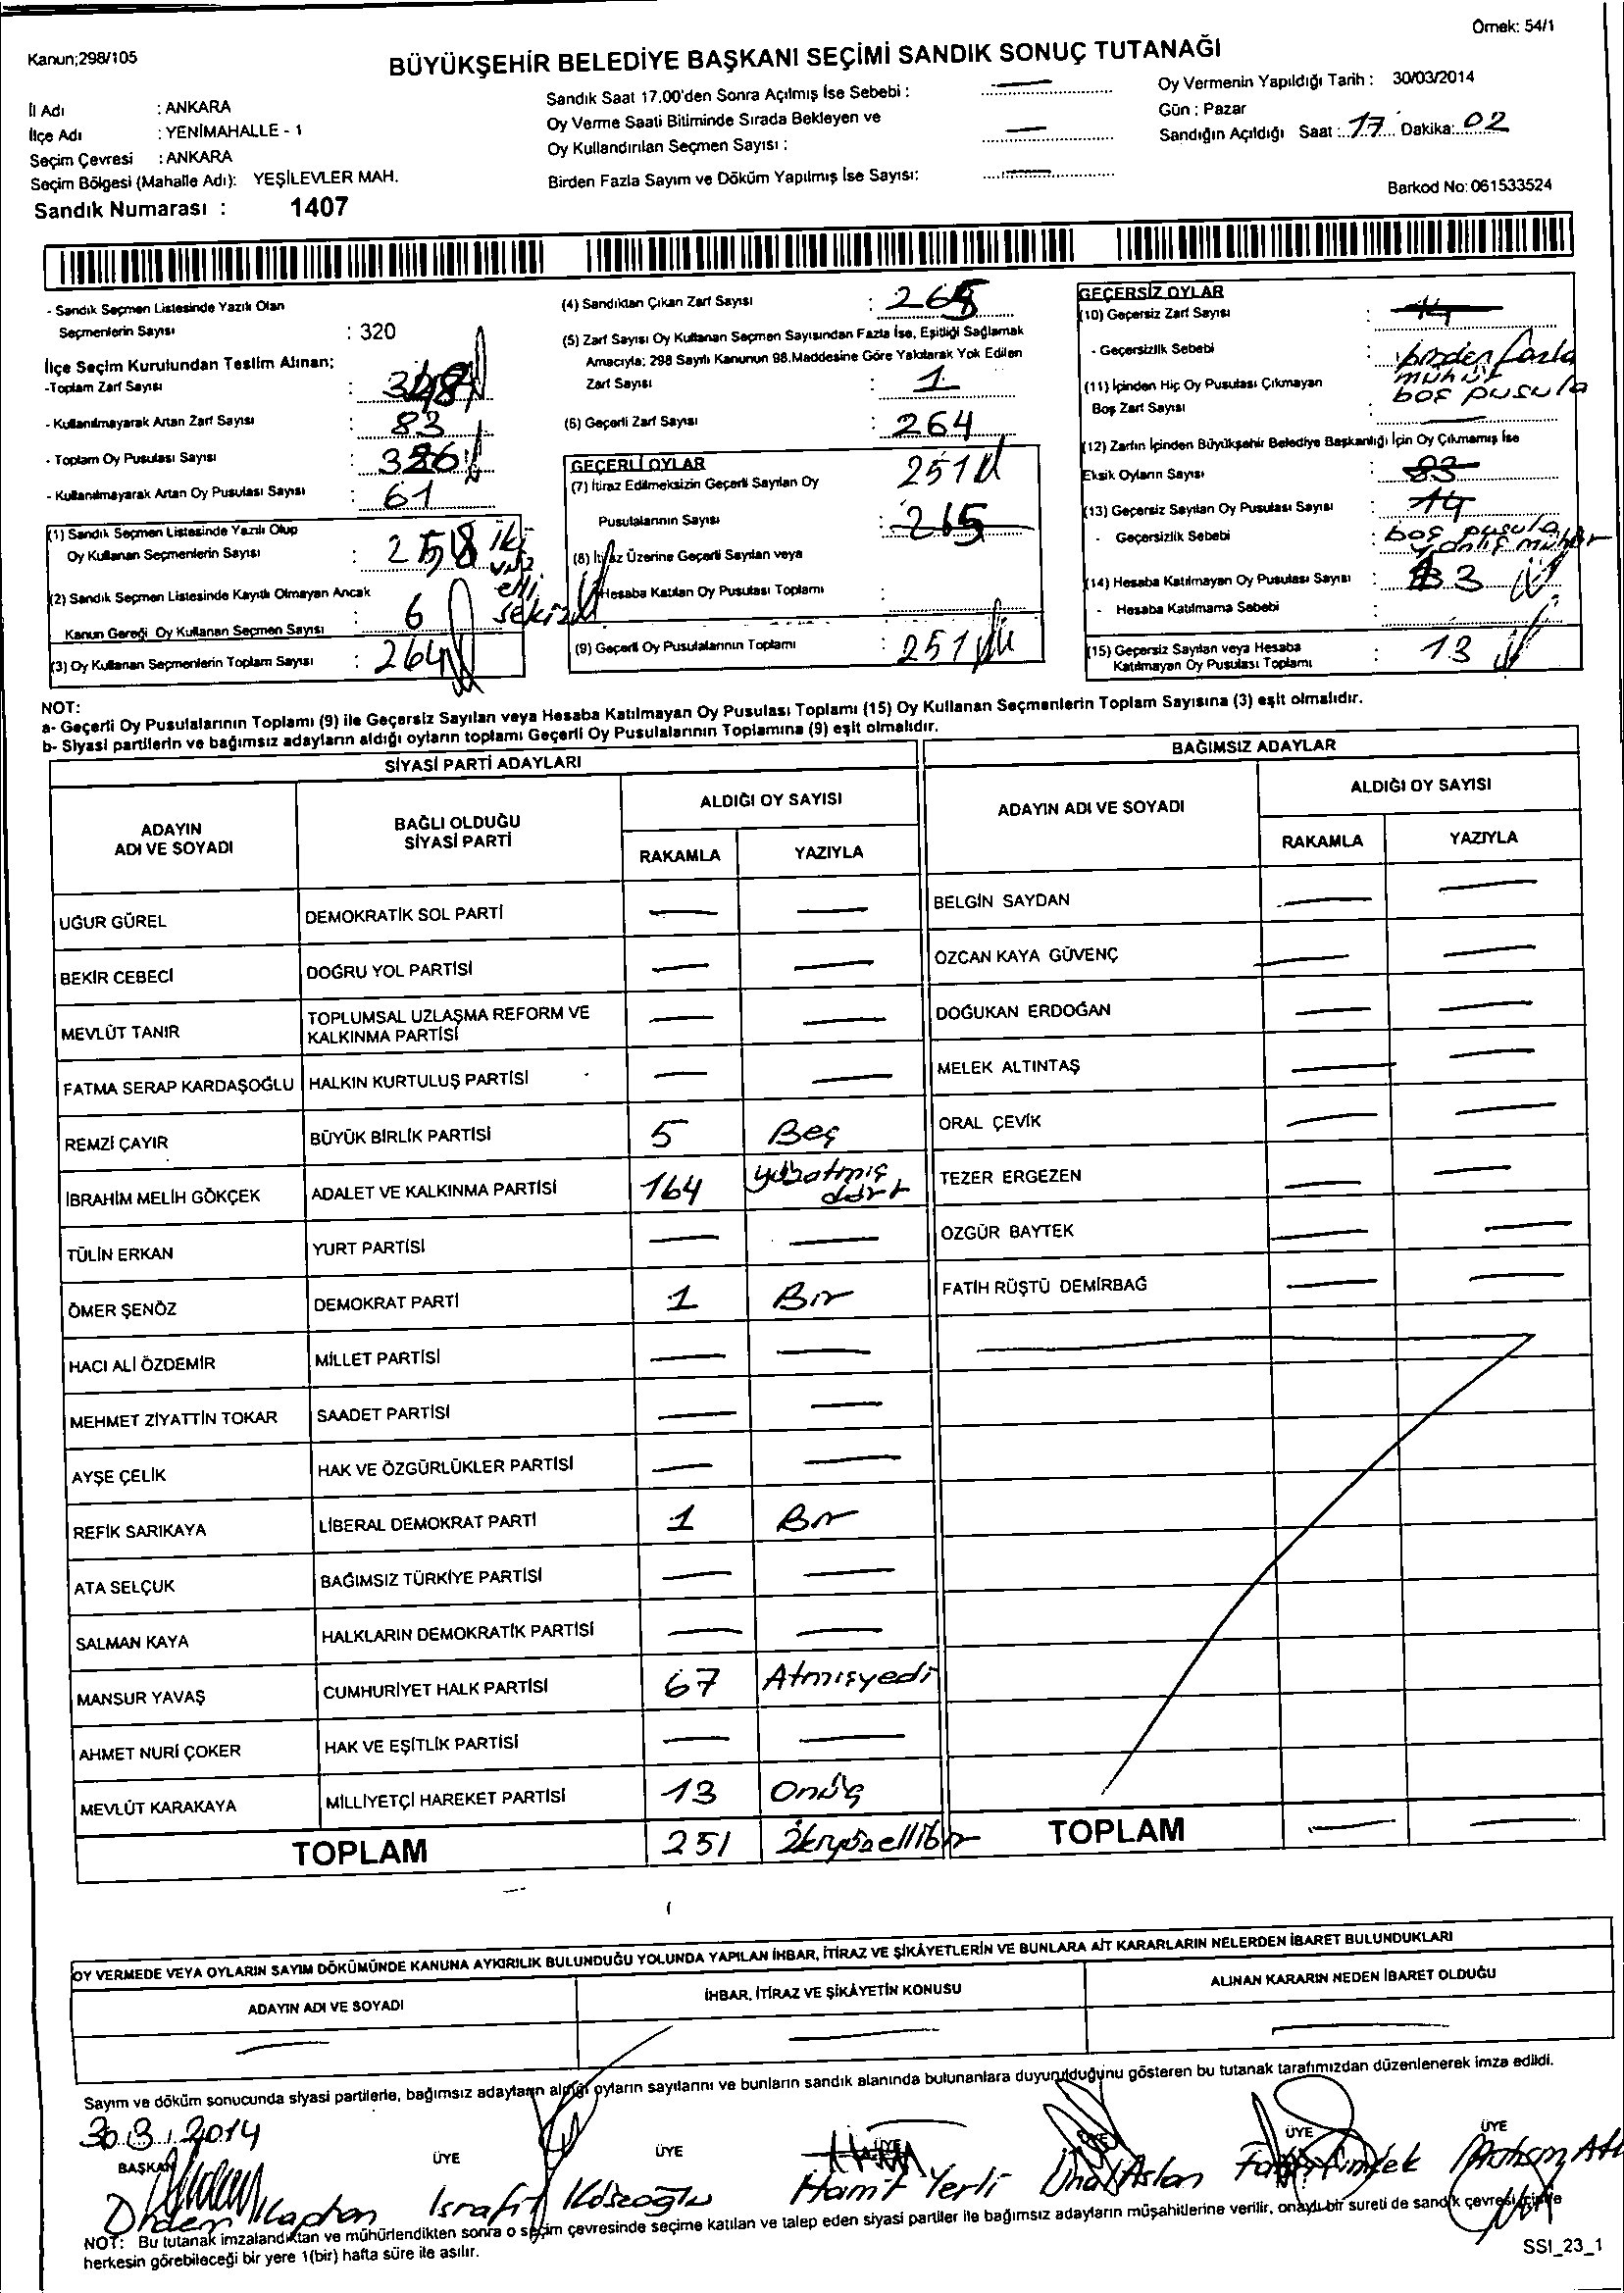 Örnek: 54/1
Kanun;298/105
BÜYÜKŞEHİR BELEDİYE BAŞKANI SEÇİMİ SANDIK SONUÇ TUTANAĞI
İl Adı : ANKARA
İlçe Adı : YENİMAHALLE - 1
Seçim Çevresi : ANKARA
Seçim Bölgesi (Mahalle Adı): YEŞİLEVLER MAH.
Sandık Numarası : 1407
Sandık Saat 17.00'den Sonra Açılmış İse Sebebi :
Oy Verme Saati Bitiminde Sırada Bekleyen ve
Oy Kullandırılan Seçmen Sayısı :
Birden Fazla Sayım ve Döküm Yapılmış İse Sayısı:
Oy Vermenin Yapıldığı Tarih : 30/03/2014
Gün : Pazar
Sandığın Açıldığı Saat : 17 Dakika: 02
Barkod No: 061533524
- Sandık Seçmen Listesinde Yazılı Olan
Seçmenlerin Sayısı : 320
İlçe Seçim Kurulundan Teslim Alınan;
-Toplam Zarf Sayısı :
- Kullanılmayarak Artan Zarf Sayısı : 83
- Toplam Oy Pusulası Sayısı :
- Kullanılmayarak Artan Oy Pusulası Sayısı : 61
(1) Sandık Seçmen Listesinde Yazılı Olup
Oy Kullanan Seçmenlerin Sayısı : 258 iki yüz elli sekiz
(2) Sandık Seçmen Listesinde Kayıtlı Olmayan Ancak
Kanun Gereği Oy Kullanan Seçmen Sayısı : 6
(3) Oy Kullanan Seçmenlerin Toplam Sayısı : 264
(4) Sandıktan Çıkan Zarf Sayısı : 265
(5) Zarf Sayısı Oy Kullanan Seçmen Sayısından Fazla İse, Eşitliği Sağlamak
Amacıyla; 298 Sayılı Kanunun 98.Maddesine Göre Yakılarak Yok Edilen
Zarf Sayısı : 1
(6) Geçerli Zarf Sayısı : 264
GEÇERLİ OYLAR
(7) İtiraz Edilmeksizin Geçerli Sayılan Oy 251
Pusulalarının Sayısı : 265
(8) İtiraz Üzerine Geçerli Sayılan veya
Hesaba Katılan Oy Pusulası Toplamı :
(9) Geçerli Oy Pusulalarının Toplamı : 251
GEÇERSİZ OYLAR
(10) Geçersiz Zarf Sayısı : 14
- Geçersizlik Sebebi : birden fazla
mühür
(11) İçinden Hiç Oy Pusulası Çıkmayan boş pusula
Boş Zarf Sayısı :
(12) Zarfın İçinden Büyükşehir Belediye Başkanlığı İçin Oy Çıkmamış İse
Eksik Oyların Sayısı : 83
(13) Geçersiz Sayılan Oy Pusulası Sayısı : 14
- Geçersizlik Sebebi : boş pusula
yanlış mühür
(14) Hesaba Katılmayan Oy Pusulası Sayısı :
- Hesaba Katılmama Sebebi :
(15) Geçersiz Sayılan veya Hesaba
Katılmayan Oy Pusulası Toplamı : 13
NOT:
a- Geçerli Oy Pusulalarının Toplamı (9) ile Geçersiz Sayılan veya Hesaba Katılmayan Oy Pusulası Toplamı (15) Oy Kullanan Seçmenlerin Toplam Sayısına (3) eşit olmalıdır.
b- Siyasi partilerin ve bağımsız adayların aldığı oyların toplamı Geçerli Oy Pusulalarının Toplamına (9) eşit olmalıdır.
SİYASİ PARTİ ADAYLARI
ADAYIN
ADI VE SOYADI
BAĞLI OLDUĞU
SİYASİ PARTİ
ALDIĞI OY SAYISI
RAKAMLA YAZIYLA
UĞUR GÜREL DEMOKRATİK SOL PARTİ
BEKİR CEBECİ DOĞRU YOL PARTİSİ
MEVLÜT TANIR TOPLUMSAL UZLAŞMA REFORM VE
KALKINMA PARTİSİ
FATMA SERAP KARDAŞOĞLU HALKIN KURTULUŞ PARTİSİ
REMZİ ÇAYIR BÜYÜK BİRLİK PARTİSİ 5 Beş
İBRAHİM MELİH GÖKÇEK ADALET VE KALKINMA PARTİSİ 164 yüzatmış
dört
TÜLİN ERKAN YURT PARTİSİ
ÖMER ŞENÖZ DEMOKRAT PARTİ 1 Bir
HACI ALİ ÖZDEMİR MİLLET PARTİSİ
MEHMET ZİYATTİN TOKAR SAADET PARTİSİ
AYŞE ÇELİK HAK VE ÖZGÜRLÜKLER PARTİSİ
REFİK SARIKAYA LİBERAL DEMOKRAT PARTİ 1 Bir
ATA SELÇUK BAĞIMSIZ TÜRKİYE PARTİSİ
SALMAN KAYA HALKLARIN DEMOKRATİK PARTİSİ
MANSUR YAVAŞ CUMHURİYET HALK PARTİSİ 67 Atmışyedi
AHMET NURİ ÇOKER HAK VE EŞİTLİK PARTİSİ
MEVLÜT KARAKAYA MİLLİYETÇİ HAREKET PARTİSİ 13 Onüç
TOPLAM 251 İkiyüzellibir
BAĞIMSIZ ADAYLAR
ADAYIN ADI VE SOYADI
ALDIĞI OY SAYISI
RAKAMLA YAZIYLA
BELGİN SAYDAN
ÖZCAN KAYA GÜVENÇ
DOĞUKAN ERDOĞAN
MELEK ALTINTAŞ
ORAL ÇEVİK
TEZER ERGEZEN
ÖZGÜR BAYTEK
FATİH RÜŞTÜ DEMİRBAĞ
TOPLAM
OY VERMEDE VEYA OYLARIN SAYIM DÖKÜMÜNDE KANUNA AYKIRILIK BULUNDUĞU YOLUNDA YAPILAN İHBAR, İTİRAZ VE ŞİKÂYETLERİN VE BUNLARA AİT KARARLARIN NELERDEN İBARET BULUNDUKLARI
ADAYIN ADI VE SOYADI
İHBAR, İTİRAZ VE ŞİKÂYETİN KONUSU
ALINAN KARARIN NEDEN İBARET OLDUĞU
Sayım ve döküm sonucunda siyasi partilerle, bağımsız adayların aldığı oyların sayılarını ve bunların sandık alanında bulunanlara duyurulduğunu gösteren bu tutanak tarafımızdan düzenlenerek imza edildi.
30.3.2014
BAŞKAN ÜYE ÜYE ÜYE ÜYE ÜYE
Kaptan İsrafil Köseoğlu Hamit Yerli Ünal Aslan
NOT: Bu tutanak imzalandıktan ve mühürlendikten sonra o seçim çevresinde seçime katılan ve talep eden siyasi partiler ile bağımsız adayların müşahitlerine verilir, onaylı bir sureti de sandık çevresi içinde
herkesin görebileceği bir yere 1(bir) hafta süre ile asılır.
SSI_23_1